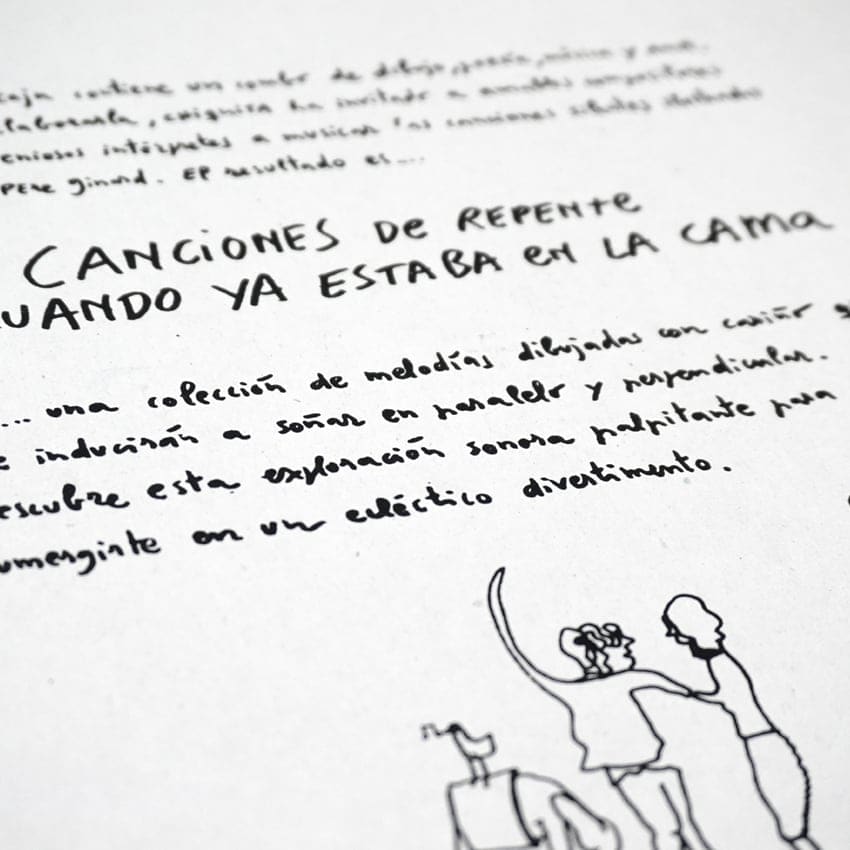 caja contiene un combo de dibujo, poesía, música y amor.
elaborarla, enigmisa ha invitado a amables compositores
eniosos intérpretes a musicar las canciones
PERE ginard. El resultado es....
CANCIONES DE REPENTE
CUANDO YA ESTABA EN LA CAMA
... una colección de melodías dibujadas con cariño
e inducirán a soñar en paralelo y perpendicular.
escubre esta exploración sonora palpitante para
umergirte en un ecléctico divertimento.